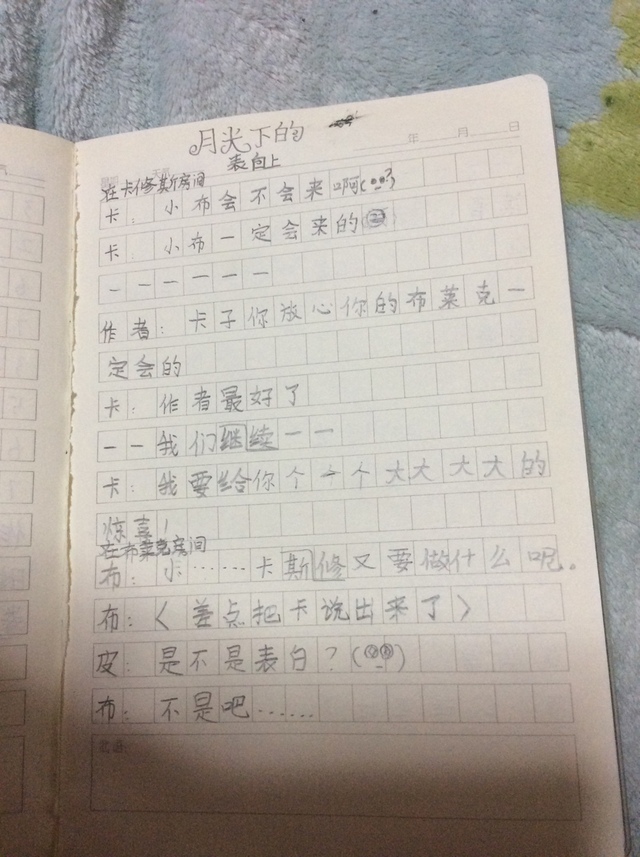 月光下的
表白上
年 月 日
在卡修斯房间
卡：小布会不会来啊(?)
卡：小布一定会来的
一一一一一一
作者：卡子你放心你的布莱克一
定会的
卡：作者最好了
一一我们继续一一
卡：我要给你个一个大大大大的
惊喜！
在布莱克房间
布：小……卡斯修又要做什么呢..
布：〈差点把卡说出来了〉
皮：是不是表白？()
布：不是吧……